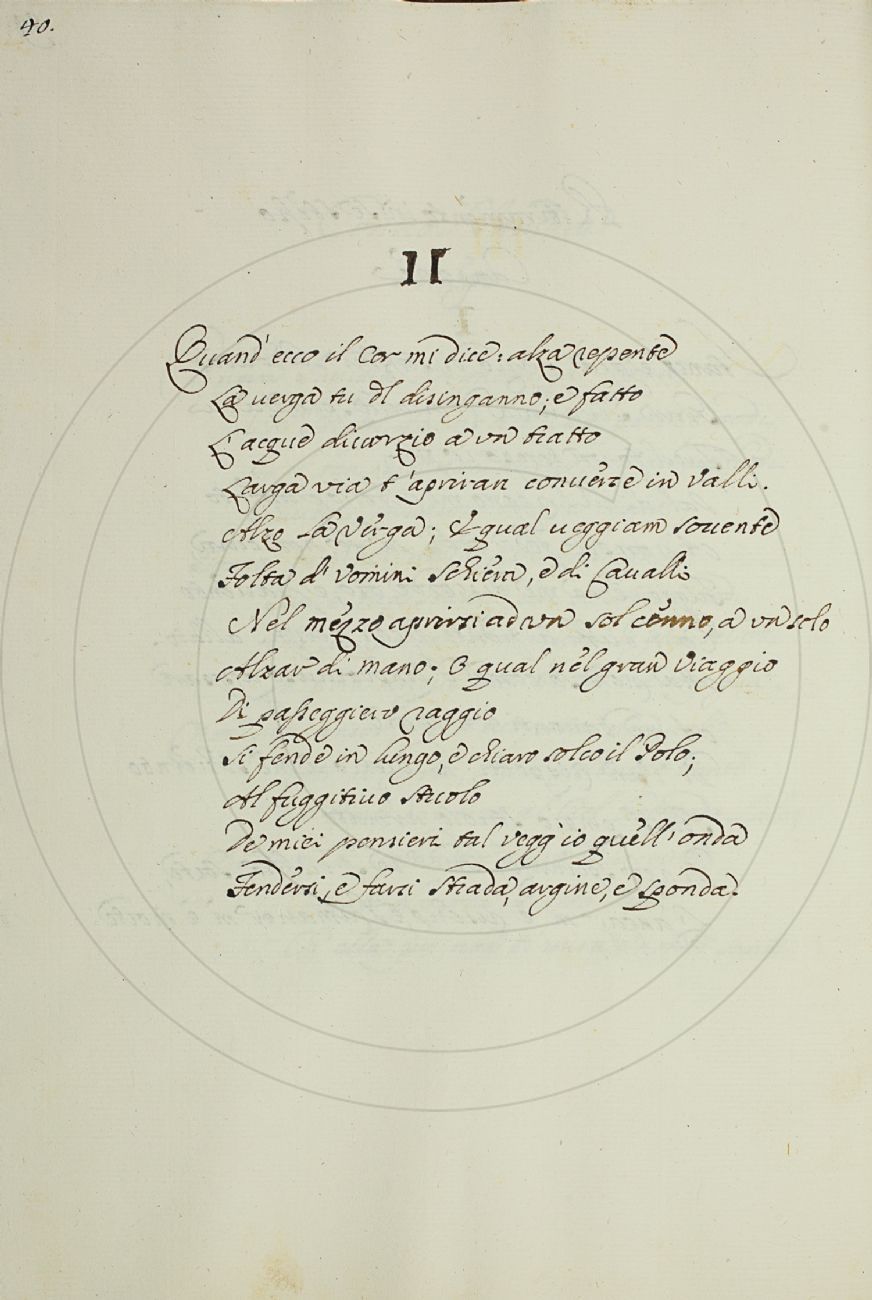 40.
II
Quand' ecco il Cor mi dice: alza repente
La verga tu dl disinganno; e fatto
L' acque divorzio a vn tratto
Larga via t' apriran converse in Valli.
Alzo La Verga; E qual veggiam sovente
Folta d' Vomini Schiera, e di Cavalli
Nel mezzo aprirsi ad vn sol cenno, a vn solo
Alzar di mano; O qual nel gran Viaggio
Di passeggiero raggio
Si fende in lungo, e chiaro solco il Polo;
Al fuggitivo Stuolo
De miei pensieri tal vegg' io quell' onda
Fendersi, e farsi Strada, argine, e sponda.